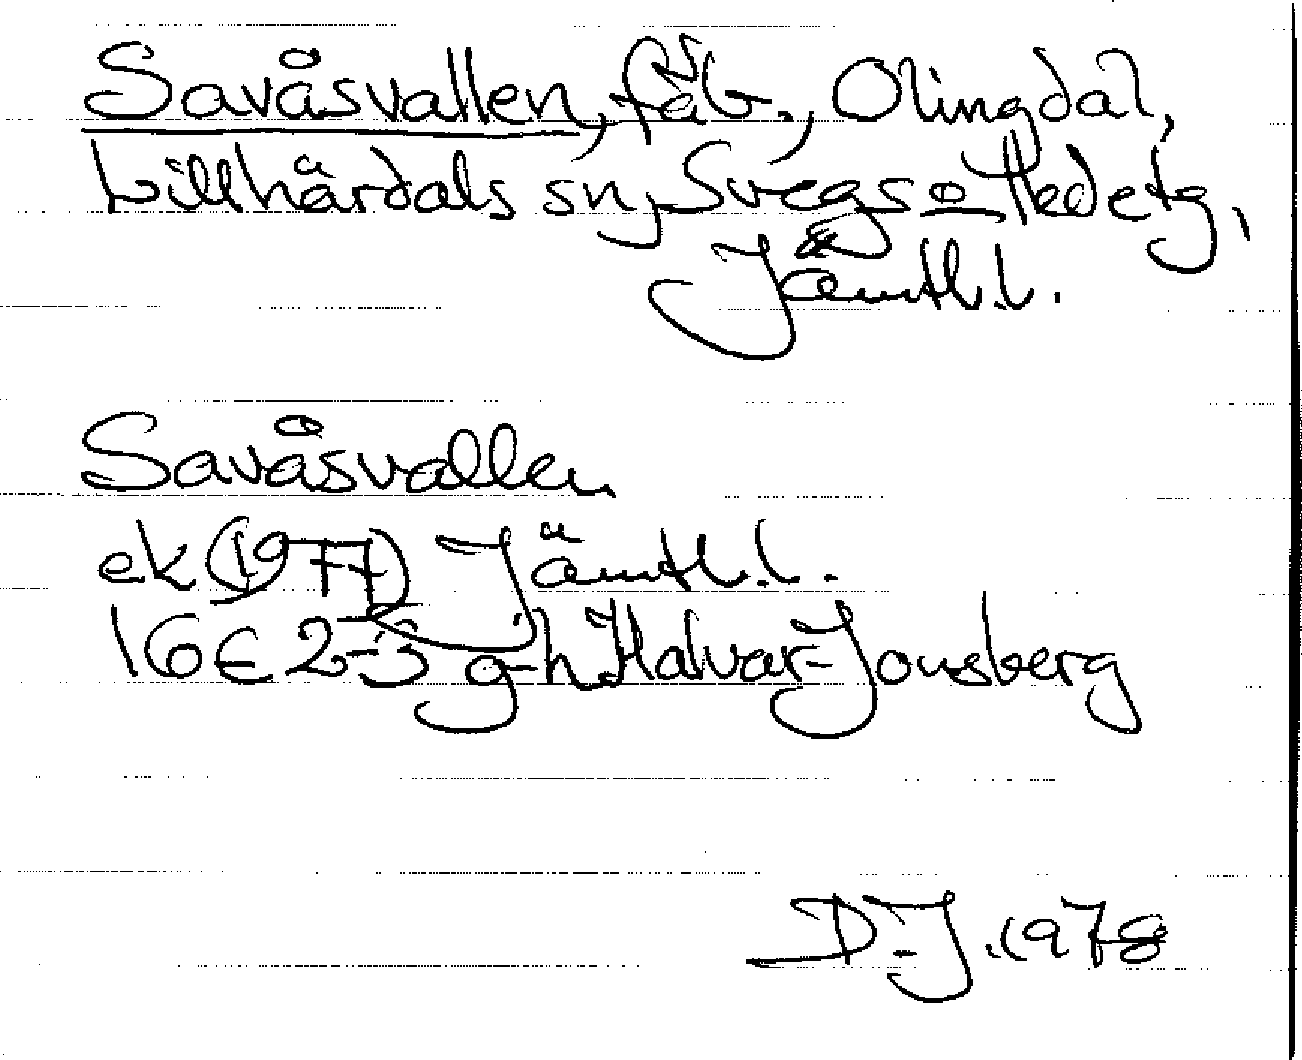 Savåsvallen, fäb., Olingdal,
Lillhärdals sn, Svegs o Hede tg,
Jämtl.l.
Savåsvallen
ek (1977) Jämtl.l.
16E 2-3 g-h Halvar-Jonsberg
D.J. 1978